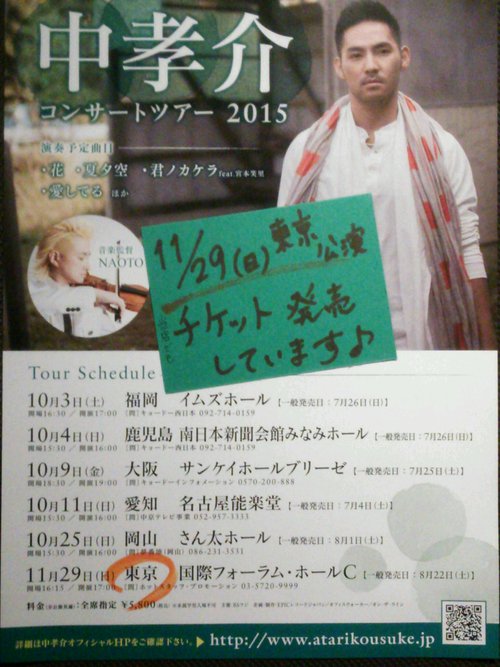 中孝介
コンサートツアー 2015
演奏予定曲目
・花 ・夏夕空 ・君ノカケラfeat.宮本笑里
・愛してる ほか
音楽監督
NAOTO
11/29(日)東京
公演
チケット 発売
しています♪
Tour Schedule
10月3日(土) 福岡 イムズホール【一般発売日:7月26日(日)】
開場16:30 / 開演17:00 [問]キョードー西日本 092-714-0159
10月4日(日) 鹿児島 南日本新聞会館みなみホール【一般発売日:7月26日(日)】
開場15:30 / 開演16:00 [問]キョードー西日本 092-714-0159
10月9日(金) 大阪 サンケイホールブリーゼ【一般発売日:7月25日(土)】
開場18:30 / 開演19:00 [問]キョードーインフォメーション 0570-200-888
10月11日(日) 愛知 名古屋能楽堂【一般発売日:7月4日(土)】
開場15:30 / 開演16:00 [問]中京テレビ事業 052-957-3333
10月25日(日) 岡山 さん太ホール【一般発売日:8月1日(土)】
開場15:30 / 開演16:00 [問]夢番地(岡山) 086-231-3531
11月29日(日) 東京 国際フォーラム・ホールC【一般発売日:8月22日(土)】
開場16:15 / 開演17:00 [問]ホットスタッフ・プロモーション 03-5720-9999
料金(全公演共通):全席指定 ¥5,800(税込) ※未就学児入場不可
詳細は中孝介オフィシャルHPをご確認下さい。 http://www.atarikousuke.jp